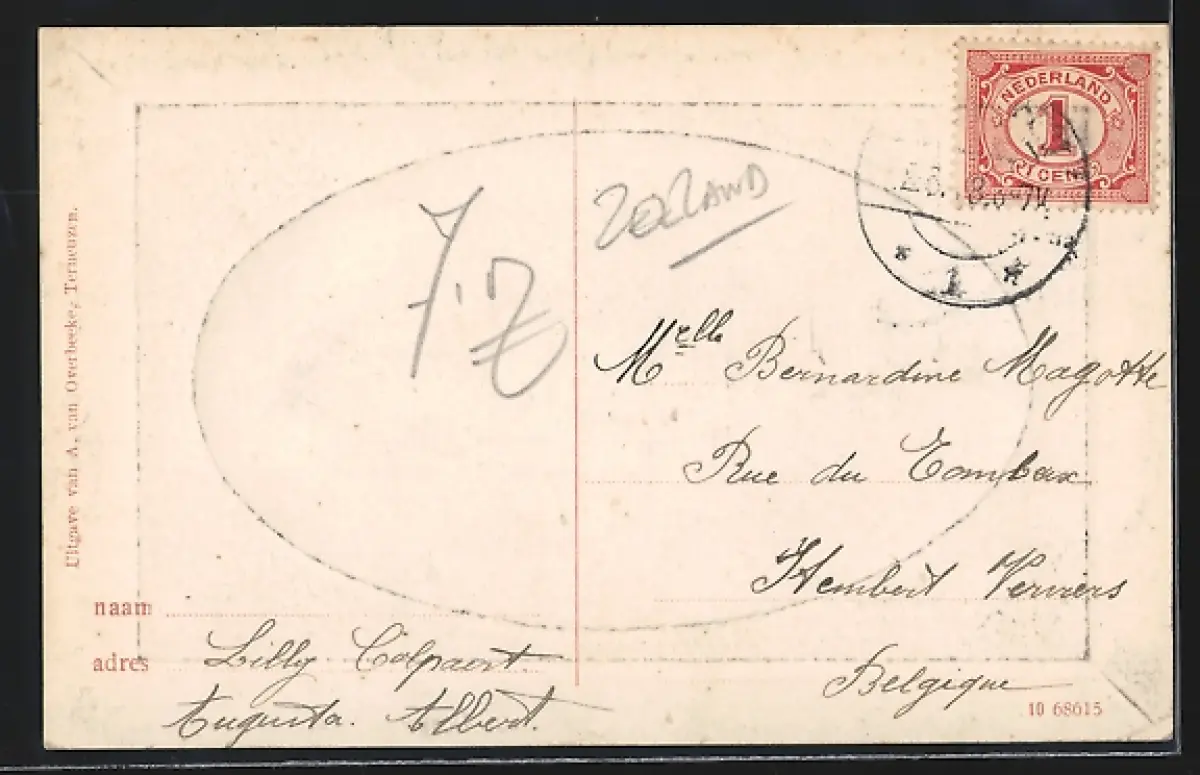 Uitgave van A. van Overbeeke, Terneuzen.
NEDERLAND
1
CENT
1
7.
ZEELAND
Melle Bernardine Magotte
Rue du Tombeux
Hembert Verviers
Belgique
naam
adres Lilly Colpaert
Augusta. Albert.
10 68615